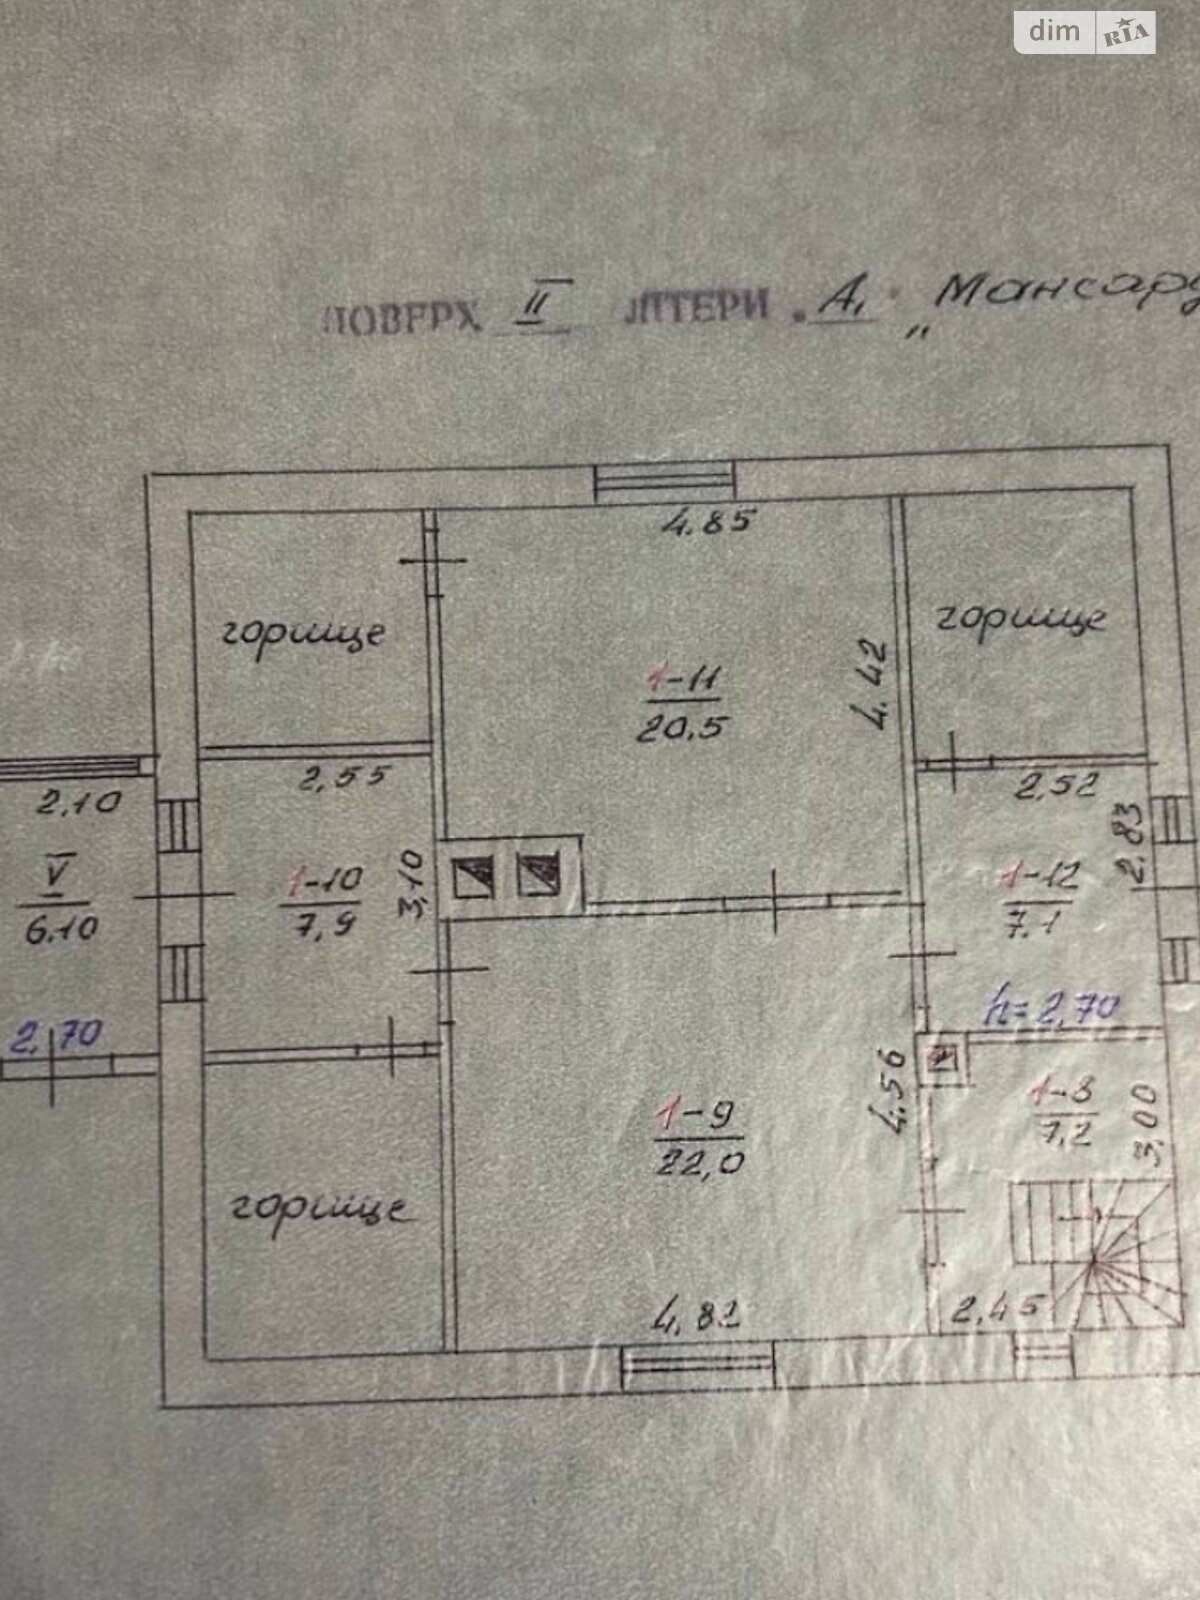 dim RIA
ПОВЕРХ II ЛІТЕРИ "А,"
4.85
горище
горище
4.42
1-11
20.5
2,55
2,52
2,10
2.83
V
6.10
1-10
7,9
3,10
1-12
7.1
h=2,70
2,70
4.56
1-8
7,2
3,00
1-9
22,0
горище
4,82
2,45